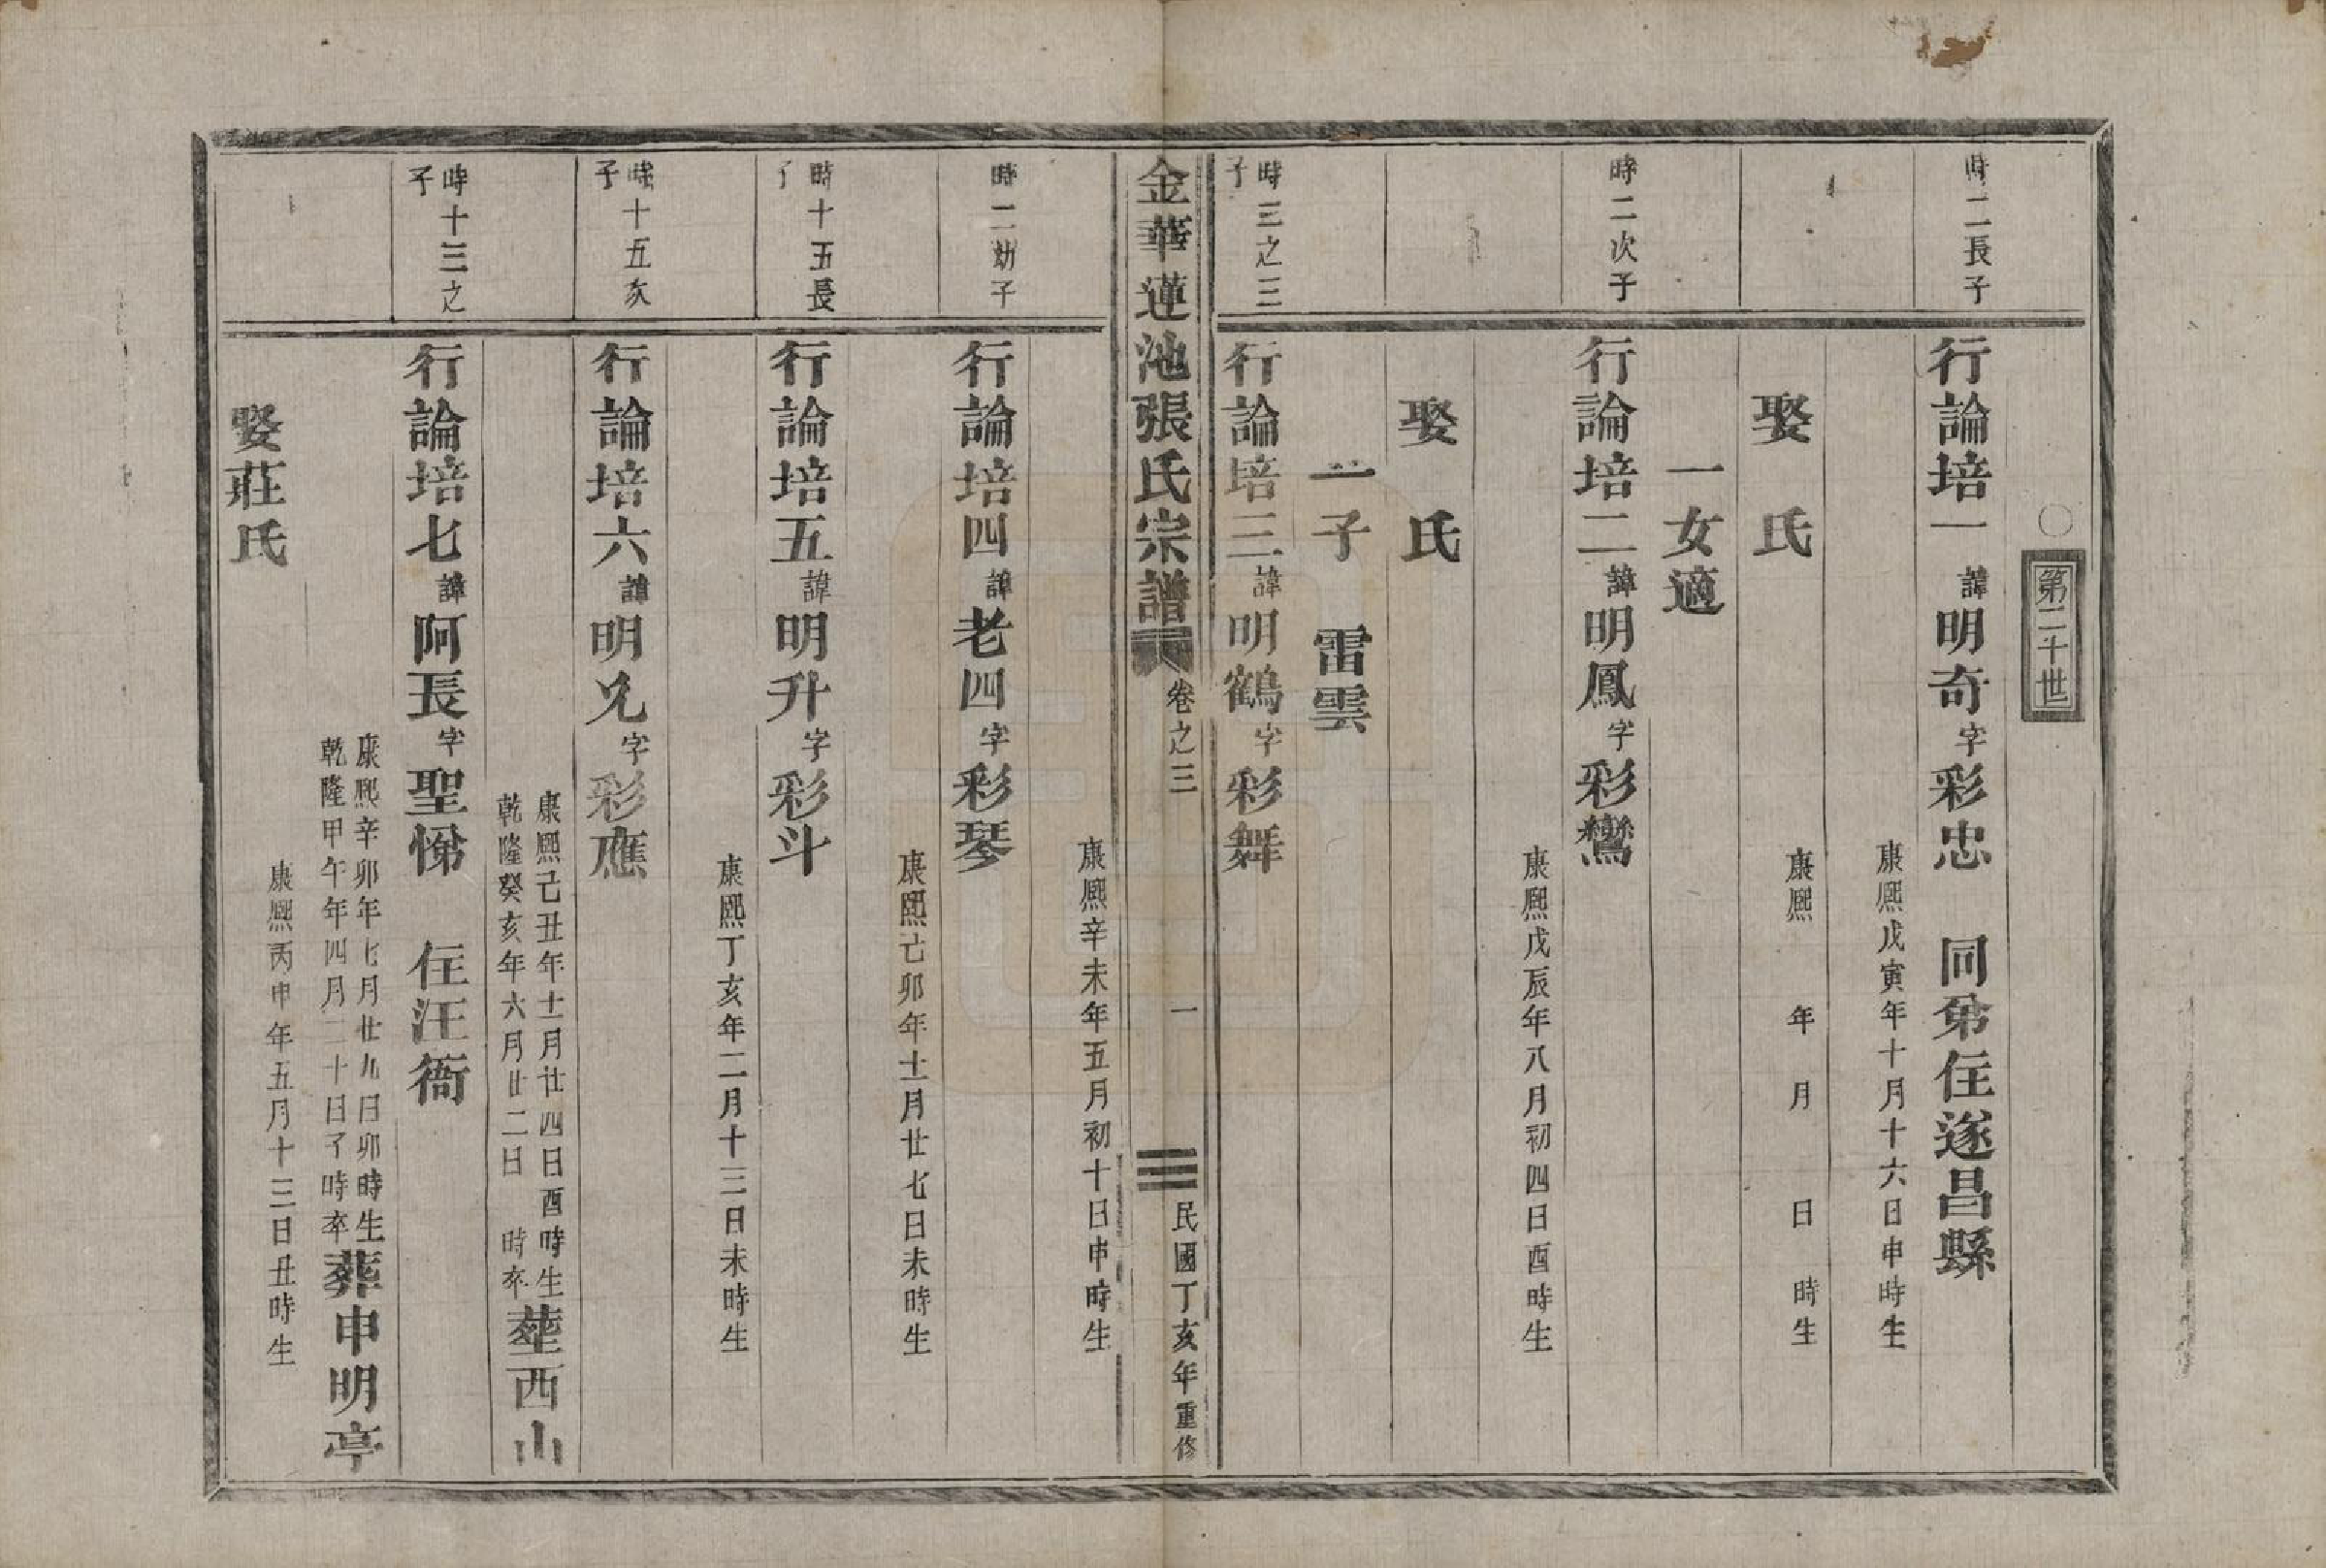 〇
第二十世
時二長子
行論培一諱明奇字彩忠　同弟住遂昌縣
康熙戊寅年十月十六日申時生
娶　氏
康熙　年　月　日　時生
一女適
時二次子
行論培二諱明鳳字彩鸞
康熙戊辰年八月初四日酉時生
娶　氏
一子　雷雲
時三之三
子
行論培三諱明鶴字彩舞
金華蓮池張氏宗譜
卷之三
一
民國丁亥年重修
康熙辛未年五月初十日申時生
時二幼子
行論培四諱老四字彩琴
康熙己卯年十一月廿七日未時生
時十五長
子
行論培五諱明升字彩斗
康熙丁亥年二月十三日未時生
時十五次
子
行論培六諱明兄字彩應
康熙己丑年十一月廿四日酉時生
乾隆癸亥年六月廿二日　時卒
塟西山
時十三之
子
行論培七諱阿長字聖悌　住汪衙
康熙辛卯年七月廿九日卯時生
乾隆甲午年四月二十日子時卒
葬申明亭
娶莊氏
康熙丙申年五月十三日丑時生